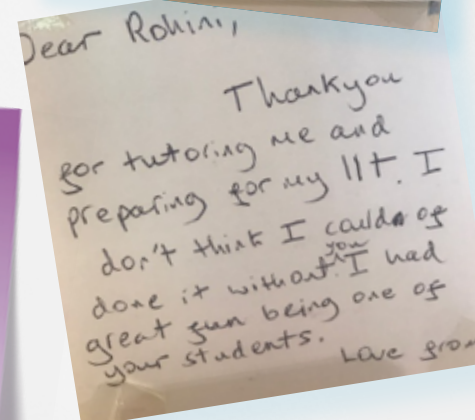 Dear Rohini,
Thankyou
for tutoring me and
preparing for my 11+. I
don't think I could of
done it without you. I had
great fun being one of
your students.
Love from